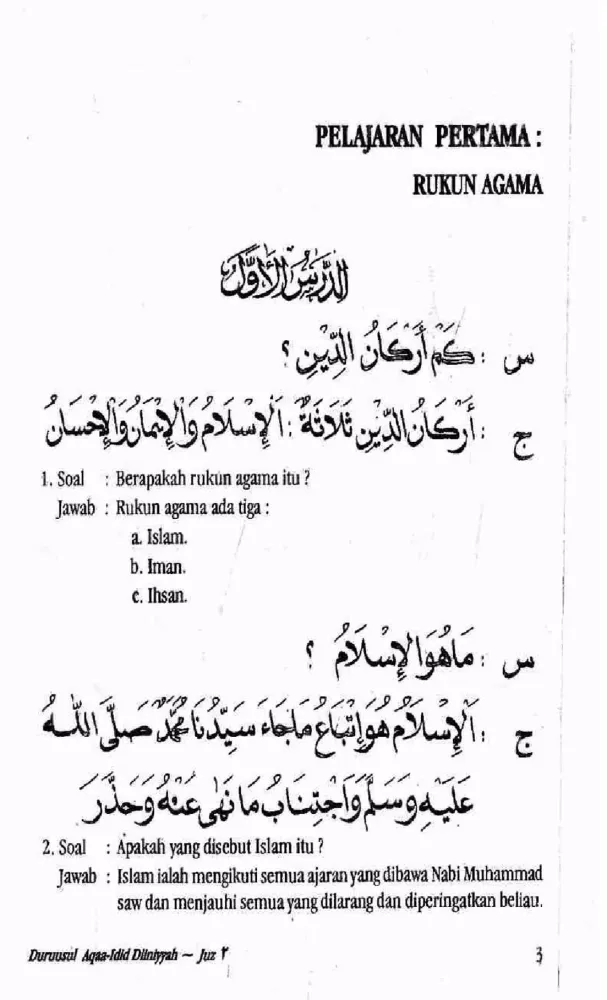 PELAJARAN PERTAMA :
RUKUN AGAMA
الدَّرْسُ الْأَوَّلُ
س : كَمْ أَرْكَانُ الدِّيْنِ ؟
ج : أَرْكَانُ الدِّيْنِ ثَلَاثَةٌ : اَلْإِسْلَامُ وَالْإِيْمَانُ وَالْإِحْسَانُ
1. Soal : Berapakah rukun agama itu ?
Jawab : Rukun agama ada tiga :
a. Islam.
b. Iman.
c. Ihsan.
س : مَاهُوَ الْإِسْلَامُ ؟
ج : اَلْإِسْلَامُ هُوَ اتِّبَاعُ مَاجَاءَ سَيِّدُنَا مُحَمَّدٌ صَلَّى اللهُ
عَلَيْهِ وَسَلَّمَ وَاجْتِنَابُ مَا نَهَى عَنْهُ وَحَذَّرَ
2. Soal : Apakah yang disebut Islam itu ?
Jawab : Islam ialah mengikuti semua ajaran yang dibawa Nabi Muhammad
saw dan menjauhi semua yang dilarang dan diperingatkan beliau.
Duruusul Aqaa-Idid Diiniyyah ~ Juz ٢ 3